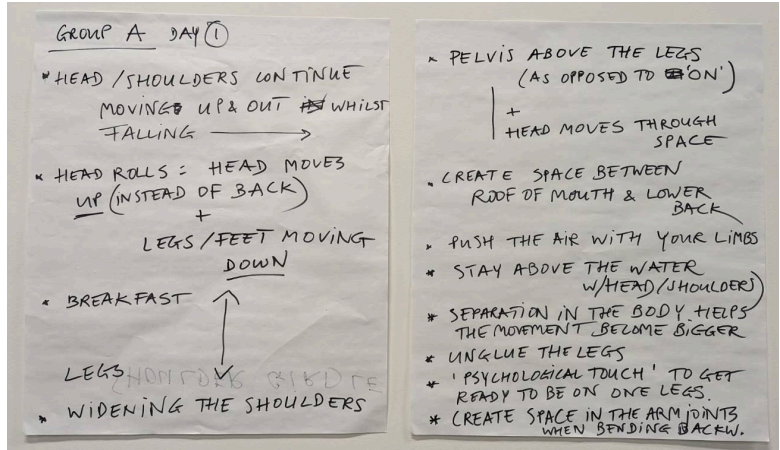 GROUP A DAY 1
* HEAD/SHOULDERS CONTINUE
MOVING UP & OUT WHILST
FALLING →
* HEAD ROLLS = HEAD MOVES
UP (INSTEAD OF BACK)
+
LEGS/FEET MOVING
DOWN
* BREAKFAST
LEGS
SHOULDER GIRDLE
* WIDENING THE SHOULDERS
* PELVIS ABOVE THE LEGS
(AS OPPOSED TO 'ON')
+
HEAD MOVES THROUGH
SPACE
* CREATE SPACE BETWEEN
ROOF OF MOUTH & LOWER
BACK
* PUSH THE AIR WITH YOUR LIMBS
* STAY ABOVE THE WATER
W/HEAD/SHOULDERS)
* SEPARATION IN THE BODY HELPS
THE MOVEMENT BECOME BIGGER
* UNGLUE THE LEGS
* 'PSYCHOLOGICAL TOUCH' TO GET
READY TO BE ON ONE LEGS.
* CREATE SPACE IN THE ARM JOINTS
WHEN BENDING BACKW.